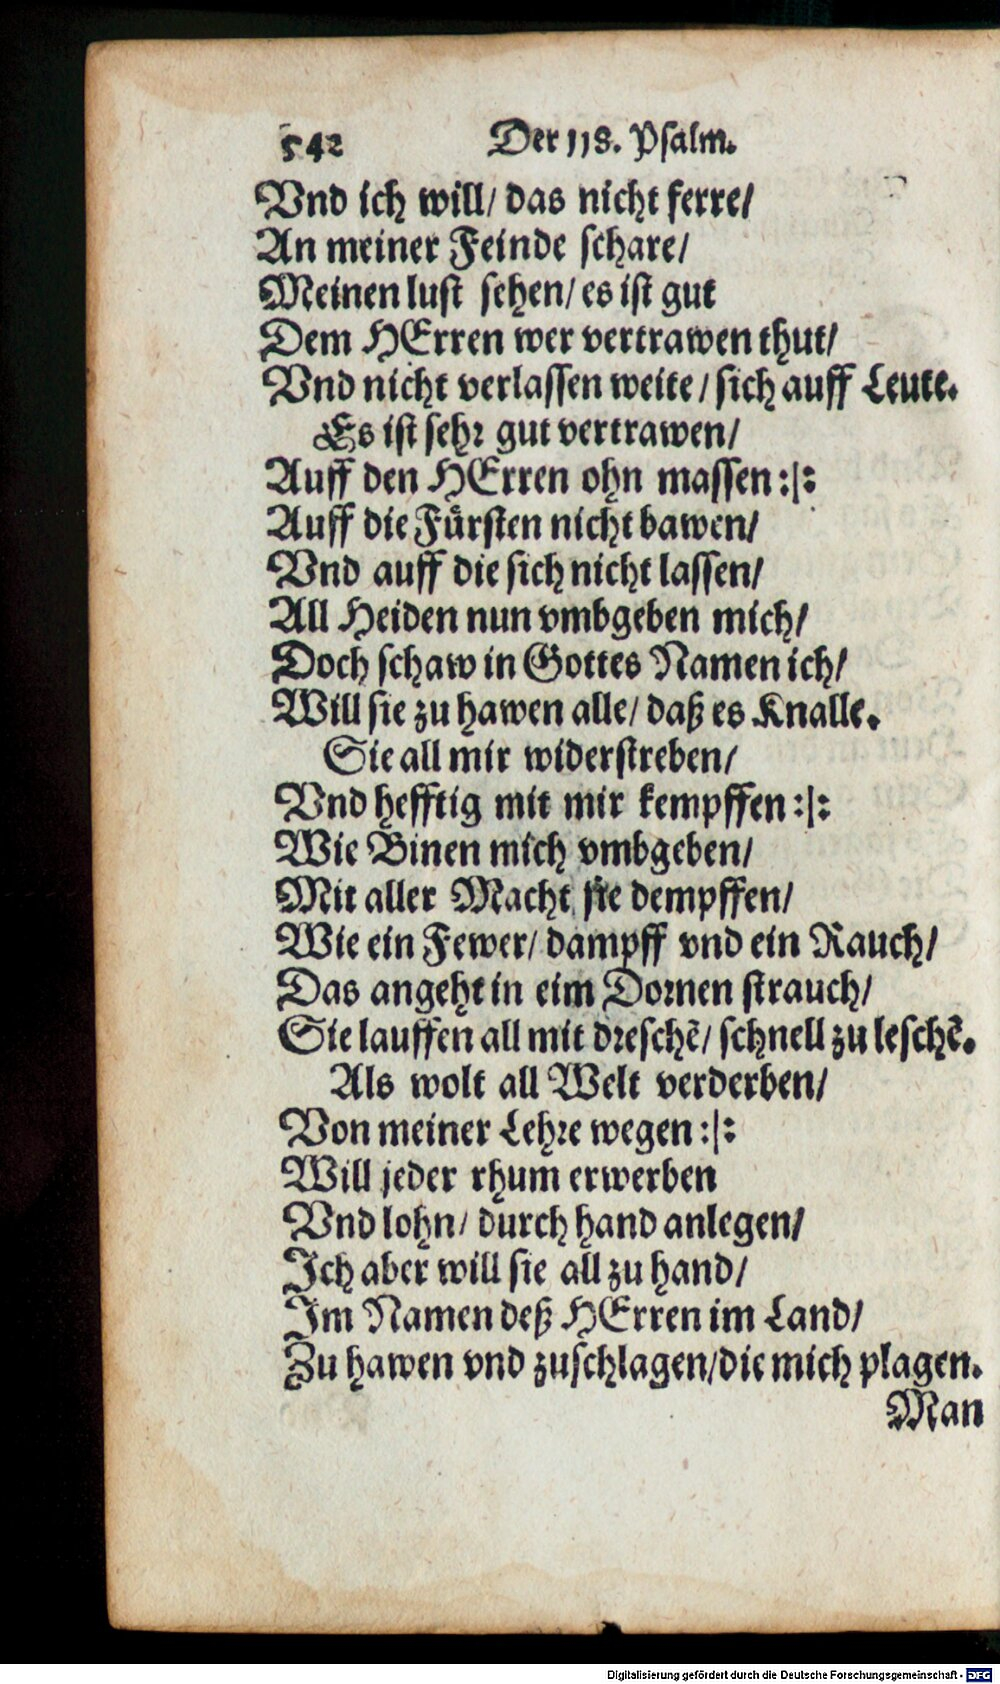 542 Der 118. Psalm.
Vnd ich will/ das nicht ferre/
An meiner Feinde schare/
Meinen lust sehen/ es ist gut
Dem HErren wer vertrawen thut/
Vnd nicht verlassen weite/ sich auff Leute.
Es ist sehr gut vertrawen/
Auff den HErren ohn massen :|:
Auff die Fürsten nicht bawen/
Vnd auff die sich nicht lassen/
All Heiden nun vmbgeben mich/
Doch schaw in Gottes Namen ich/
Will sie zu hawen alle/ daß es Knalle.
Sie all mir widerstreben/
Vnd hefftig mit mir kempffen :|:
Wie Binen mich vmbgeben/
Mit aller Macht sie dempffen/
Wie ein Fewer/ dampff vnd ein Rauch/
Das angeht in eim Dornen strauch/
Sie lauffen all mit dreschẽ/ schnell zu leschẽ.
Als wolt all Welt verderben/
Von meiner Lehre wegen :|:
Will jeder rhum erwerben
Vnd lohn/ durch hand anlegen/
Ich aber will sie all zu hand/
Im Namen deß HErren im Land/
Zu hawen vnd zuschlagen/die mich plagen.
Man
Digitalisierung gefördert durch die Deutsche Forschungsgemeinschaft - DFG